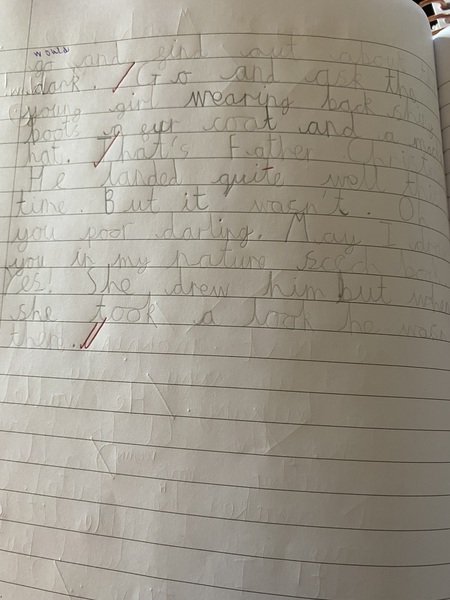 would
go and find out about
dark. Go and ask the
young girl wearing back
boots fur coat and a
hat. That's Father
He landed quite well
time. But it wasn't. Oh
you poor darling. May I
you in my nature scech
Yes. She drew him but when
she took a look he was
there.